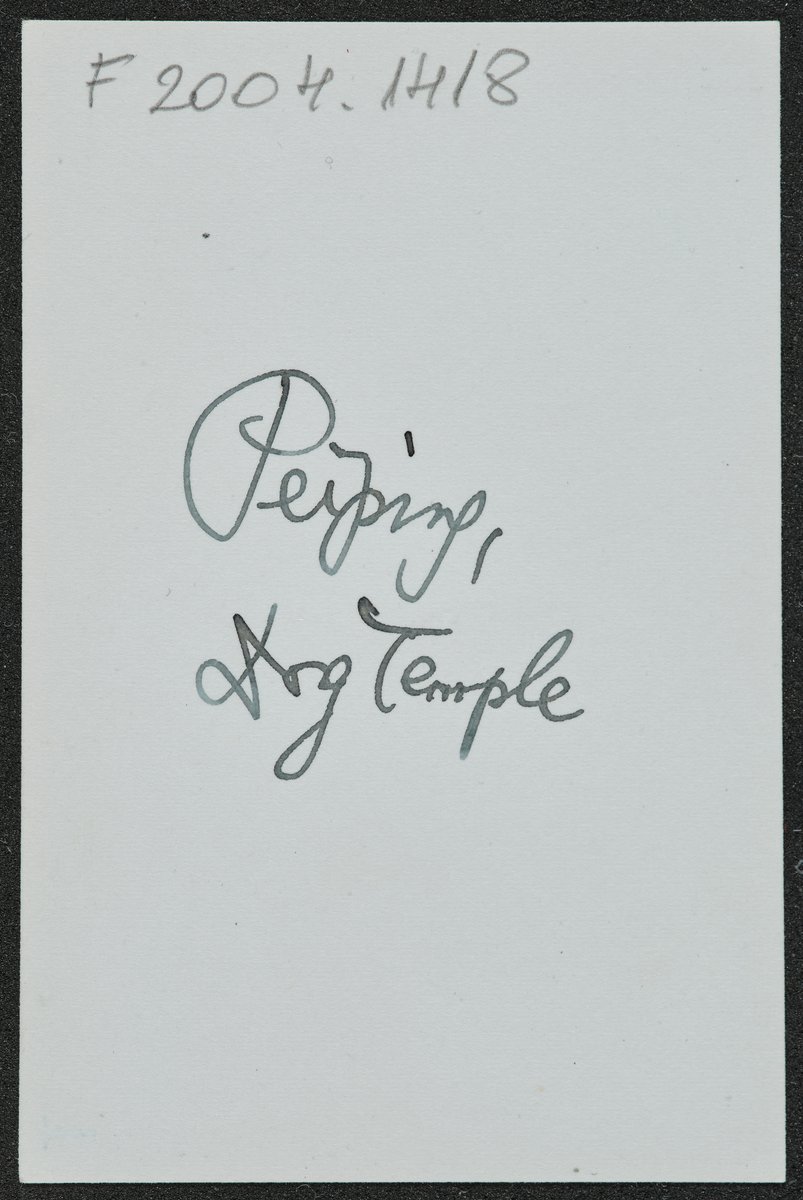 F 2004.1418
Peiping,
Dog Temple